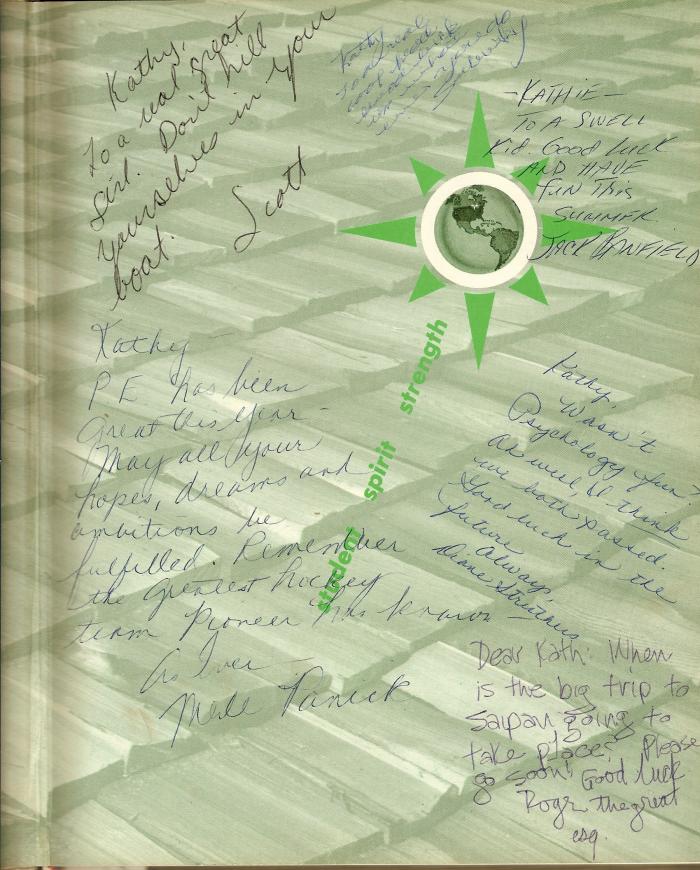 Kathy,
To a real great
girl. Don't kill
yourselves in your
boat.
Scott
Kathy
To a real
good
-KATHIE-
TO A SWELL
Kid. Good luck
AND HAVE
FUN THIS
SUMMER
JACK BANFIELD
strength
spirit
student
Kathy —
PE has been
great this year —
May all your
hopes, dreams and
ambitions be
fulfilled. Remember
the greatest hockey
team Pioneer has known —
As Ever —
Merle
Kathy,
Wasn't
Psychology fun?
Ah well I think
we both passed.
Good luck in the
future
Always,
Diane Struthers
Dear Kath: When
is the big trip to
Saipan going to
take place? Please
go soon! Good luck
Roger the great
esq.